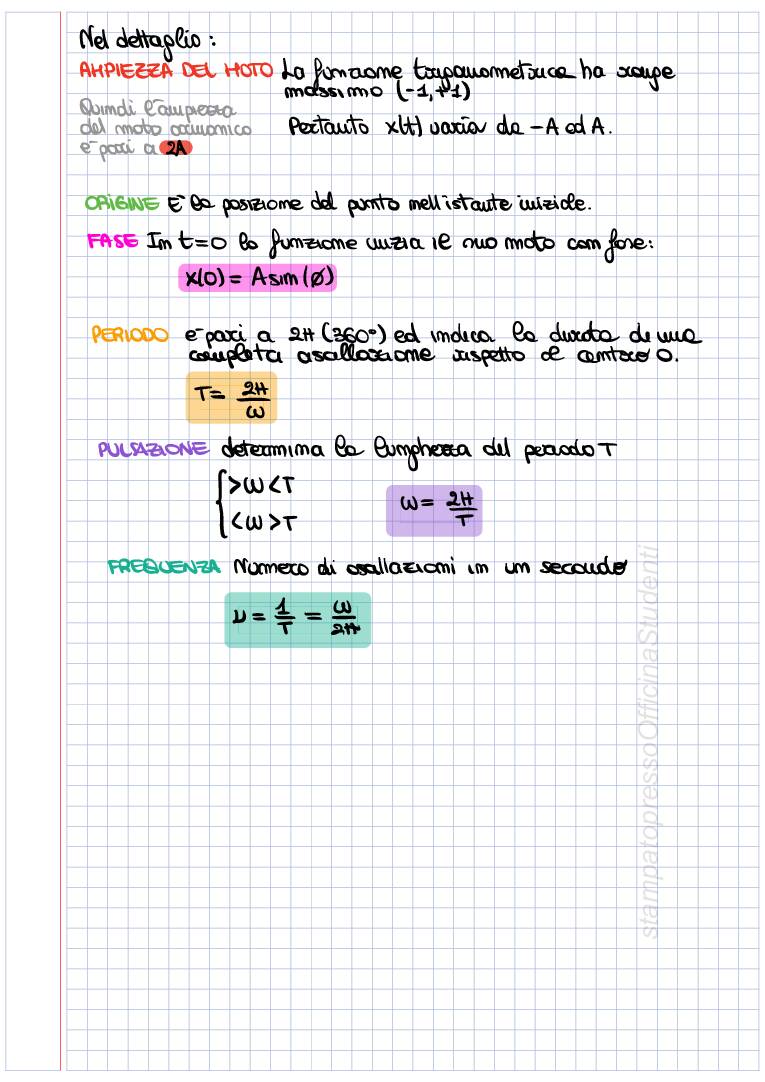 Nel dettaglio:
AMPIEZZA DEL MOTO La funzione trigonometrica ha range
massimo (-1,+1)
Quindi l'ampiezza
del moto armonico
è pari a 2A
Pertanto x(t) varia da -A ad A.
ORIGINE È la posizione del punto nell'istante iniziale.
FASE In t=0 la funzione inizia il suo moto con fase:
x(0) = A sin(ø)
PERIODO è pari a 2π (360°) ed indica la durata di una
completa oscillazione rispetto al centro O.
T = 2π/ω
PULSAZIONE determina la lunghezza del periodo T
{ >ω <T
<ω >T
ω = 2π/T
FREQUENZA Numero di oscillazioni in un secondo
ν = 1/T = ω/2π
stampatopressoOfficinaStudenti